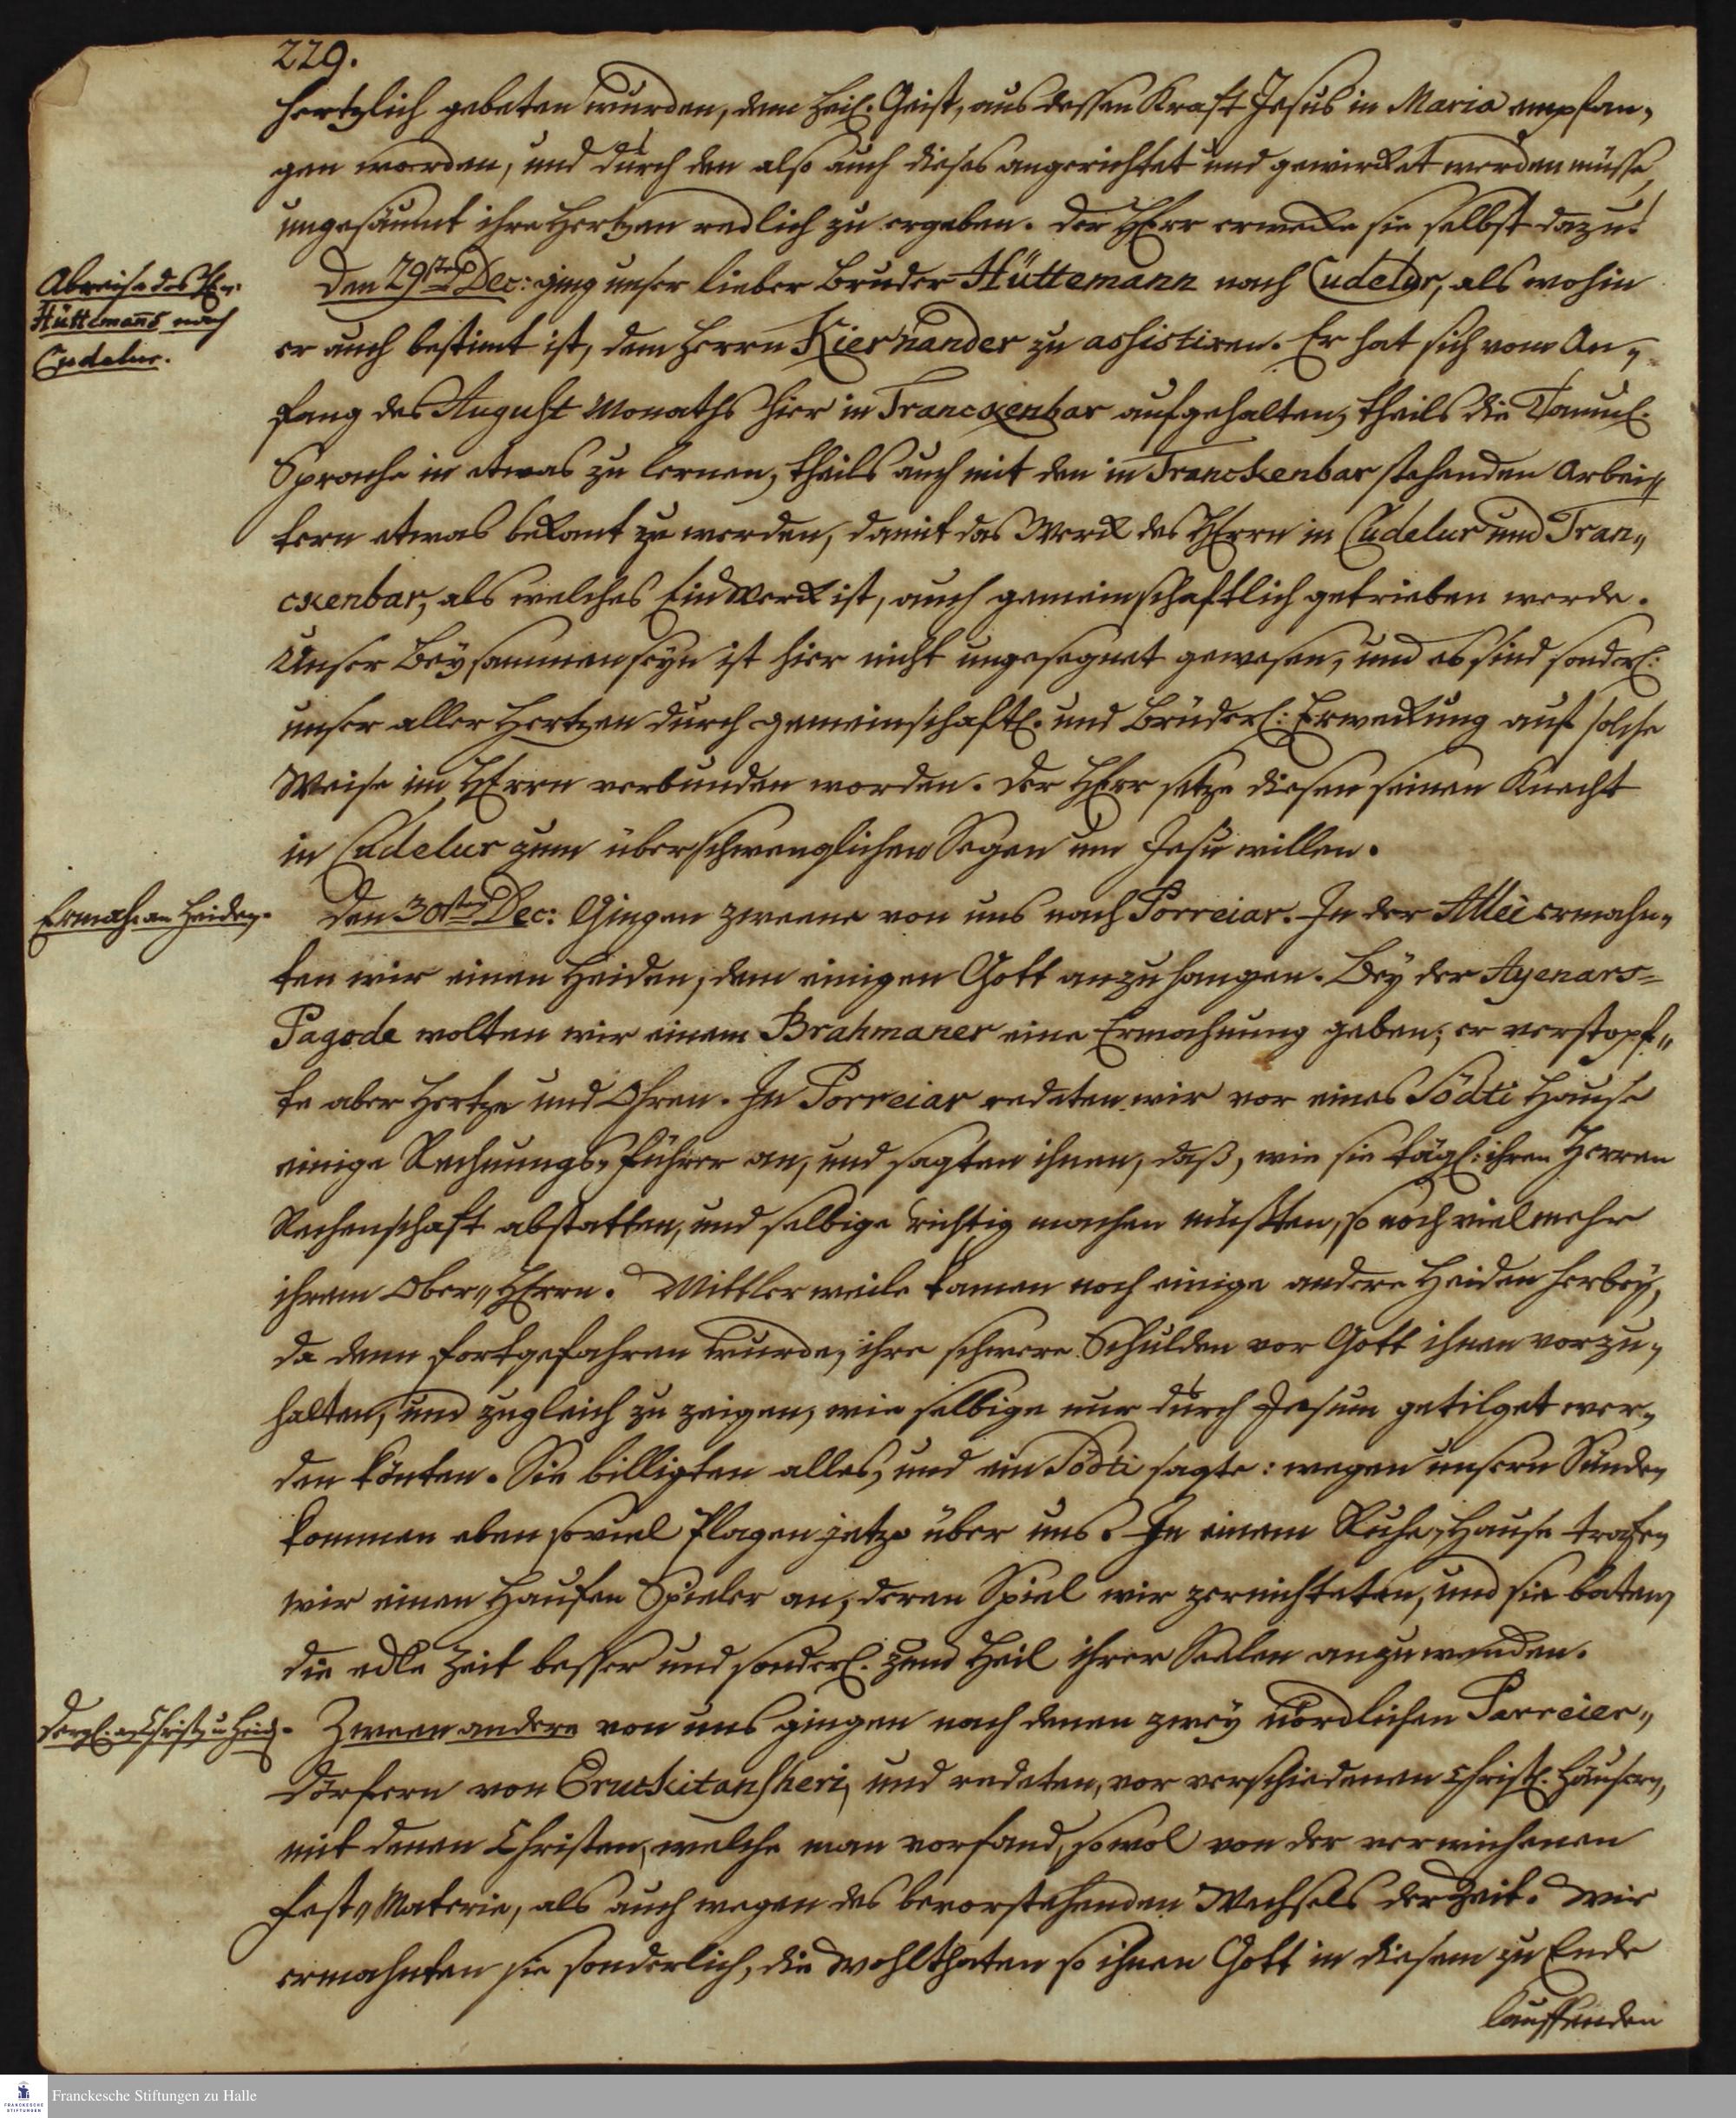 229.
hertzlich gebeten wurden, dem Heil. Geist, aus dessen Kraft Jesus in Maria empfan„
gen worden, und durch den also auch dieses angerichtet und gewircket werden müsse,
ungesäumt ihre Hertzen redlich zu ergeben. Der HErr erwecke sie selbst dazu!
Abreise des Hn.
Hüttemanns nach
Cudelur.
Den 29sten Dec: ging unser lieber Bruder Hüttemann nach Cudelur, als wohin
er auch bestimt ist, dem Herrn Kiernander zu assistiren. Er hat sich vom An„
fang des August Monaths hier in Tranckenbar aufgehalten, theils die Tamul.
Sprache in etwas zu lernen, theils auch mit den in Tranckenbar stehenden Arbei„
tern etwas bekant zu werden, damit das Werck des HErrn in Cudelur und Tran„
ckenbar, als welches Ein Werck ist, auch gemeinschaftlich getrieben werde.
Unser Beysammenseyn ist hier nicht ungesegnet gewesen, und es sind sonderl:
unser aller Hertzen durch gemeinschaftl. und Brüderl: Erweckung auf solche
Weise im HErrn verbunden worden. Der HErr setze diesen seinen Knecht
in Cudelur zum überschwenglichen Segen um Jesu willen.
Ermah. an Heiden.
Den 30sten Dec: Gingen zweene von uns nach Porreiar. In der Allèe ermahn„
ten wir einen Heiden, dem einigen Gott anzuhangen. Bey der Ayenars=
Pagode wolten wir einem Brahmaner eine Ermahnung geben; er verstopf„
te aber Hertze und Ohren. In Porreiar redeten wir vor eines Södti Hause
einige Rechnungs„Führer an, und sagten ihnen, daß, wie sie tägl: ihren Herren
Rechenschaft abstatten, und selbige richtig machen müßten, so noch vielmehr
ihrem Ober„HErrn. Mittlerweile kamen noch einige andere Heiden herbey,
da denn fortgefahren wurde, ihre schwere Schulden vor Gott ihnen vorzu„
halten, und zugleich zu zeigen, wie selbige nur durch Jesum getilget wer„
den könten. Sie billigten alles, und ein Södti sagte: wegen unsern Sünden
kommen eben soviel Plagen jetzo über uns. In einem Ruhe„Hause trafen
wir einen Haufen Spieler an, deren Spiel wir zernichteten, und sie baten,
die edle Zeit besser und sonderl. zum Heil ihrer Seelen anzuwenden.
Dergl. a. Christ. u Heid.
Zween andere von uns gingen nach denen zwey nördlichen Parreier„
dörfern von Oruckitansheri, und redeten, vor verschiedenen Christl. Häusern,
mit denen Christen, welche man vorfand, sowol von der verwichenen
Fest„Materie, als auch wegen des bevorstehenden Wechsels der Zeit. Wir
ermahnten sie sonderlich, die Wohlthaten so ihnen Gott in diesem zu Ende
lauffenden
Franckesche Stiftungen zu Halle
FRANCKESCHE
STIFTUNGEN